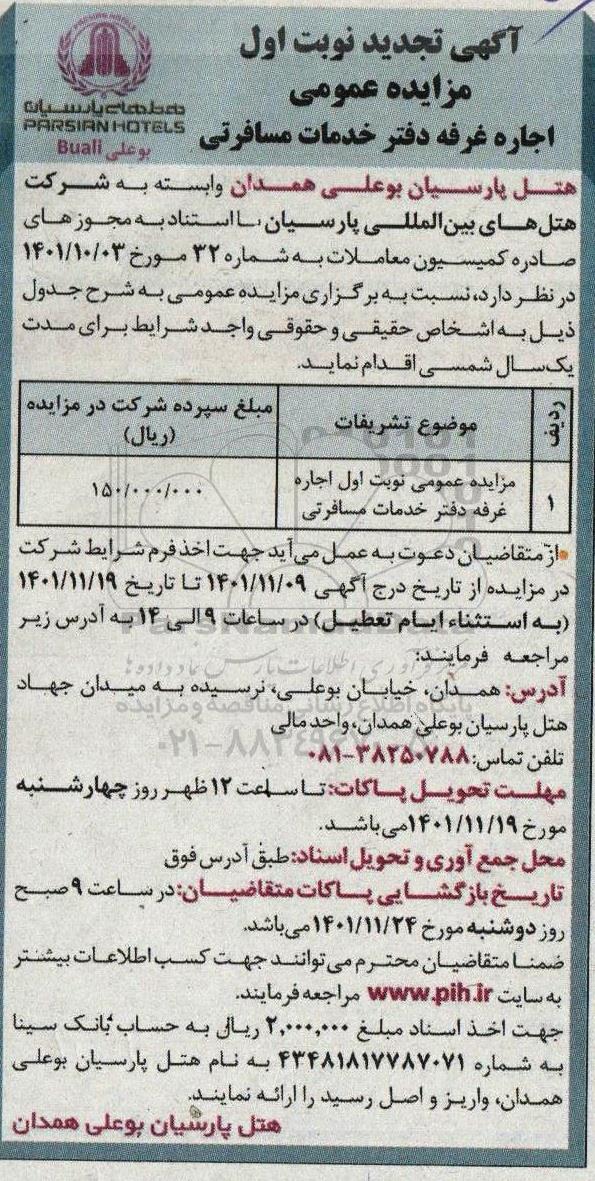 آگهی تجدید نوبت اول
مزایده عمومی
اجاره غرفه دفتر خدمات مسافرتی
هتلهای پارسیان
PARSIAN HOTELS
بوعلی Buali
هتل پارسیان بوعلی همدان وابسته به شرکت
هتل‌های بین‌المللی پارسیان با استناد به مجوزهای
صادره کمیسیون معاملات به شماره ۳۲ مورخ ۱۴۰۱/۱۰/۰۳
در نظر دارد، نسبت به برگزاری مزایده عمومی به شرح جدول
ذیل به اشخاص حقیقی و حقوقی واجد شرایط برای مدت
یک‌سال شمسی اقدام نماید.
ردیف موضوع تشریفات مبلغ سپرده شرکت در مزایده
(ریال)
۱ مزایده عمومی نوبت اول اجاره
غرفه دفتر خدمات مسافرتی ۱۵۰/۰۰۰/۰۰۰
از متقاضیان دعوت به عمل می‌آید جهت اخذ فرم شرایط شرکت
در مزایده از تاریخ درج آگهی ۱۴۰۱/۱۱/۰۹ تا تاریخ ۱۴۰۱/۱۱/۱۹
(به استثناء ایام تعطیل) در ساعات ۹ الی ۱۴ به آدرس زیر
مراجعه فرمایند:
آدرس: همدان، خیابان بوعلی، نرسیده به میدان جهاد
هتل پارسیان بوعلی همدان، واحد مالی
تلفن تماس: ۳۸۲۵۰۷۸۸-۰۸۱
مهلت تحویل پاکات: تا ساعت ۱۲ ظهر روز چهارشنبه
مورخ ۱۴۰۱/۱۱/۱۹ می‌باشد.
محل جمع آوری و تحویل اسناد: طبق آدرس فوق
تاریخ بازگشایی پاکات متقاضیان: در ساعت ۹ صبح
روز دوشنبه مورخ ۱۴۰۱/۱۱/۲۴ می‌باشد.
ضمنا متقاضیان محترم می‌توانند جهت کسب اطلاعات بیشتر
به سایت www.pih.ir مراجعه فرمایند.
جهت اخذ اسناد مبلغ ۲,۰۰۰,۰۰۰ ریال به حساب بانک سینا
به شماره ۴۳۴۸۱۸۱۷۷۸۷۰۷۱ به نام هتل پارسیان بوعلی
همدان، واریز و اصل رسید را ارائه نمایند.
هتل پارسیان بوعلی همدان